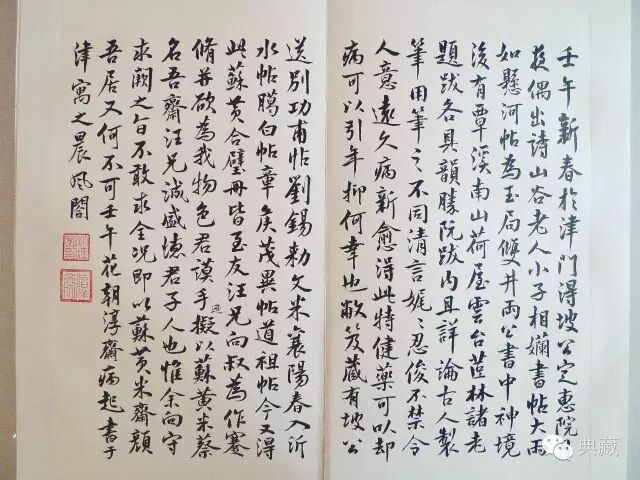 壬午新春於津門得坡公定惠院
夜偶出詩山谷老人小子相嬭書帖大雨
如懸河帖為玉局雙井兩公書中神境
後有覃溪南山荷屋雲台茝林諸老
題跋各具韻勝阮跋內且詳論古人製
筆用筆之不同清言娓〻忍俊不禁令
人意遠久病新愈得此特健藥可以却
病可以引年抑何幸也敝笈藏有坡公
送別功甫帖劉錫勅文米襄陽春入沂
水帖臈白帖章侯茂異帖道祖帖今又得
此蘇黃合璧冊皆至友汪兄向叔為作蹇
脩并欲為我物色君謨手迹擬以蘇黃米蔡
名吾齋汪兄誠盛德君子人也惟余向守
求闕之旨不敢求全況即以蘇黃米齋顏
吾居又何不可壬午花朝淳齋病起書于
津寓之晨風閣
典藏